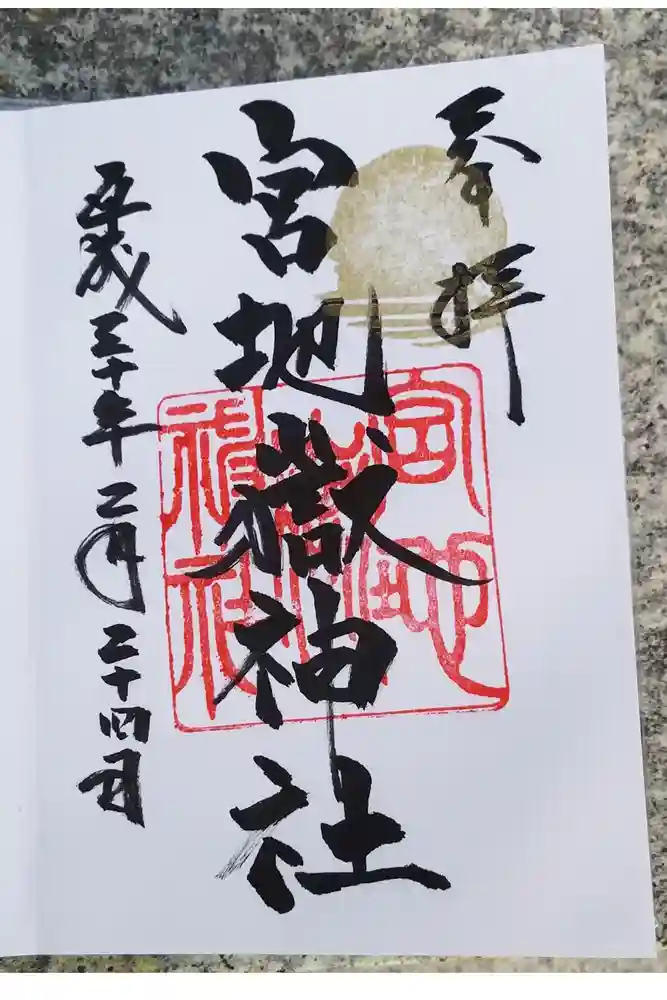 奉拝
宮地嶽神社
平成三十年二月二十四日
宮地
嶽
神社